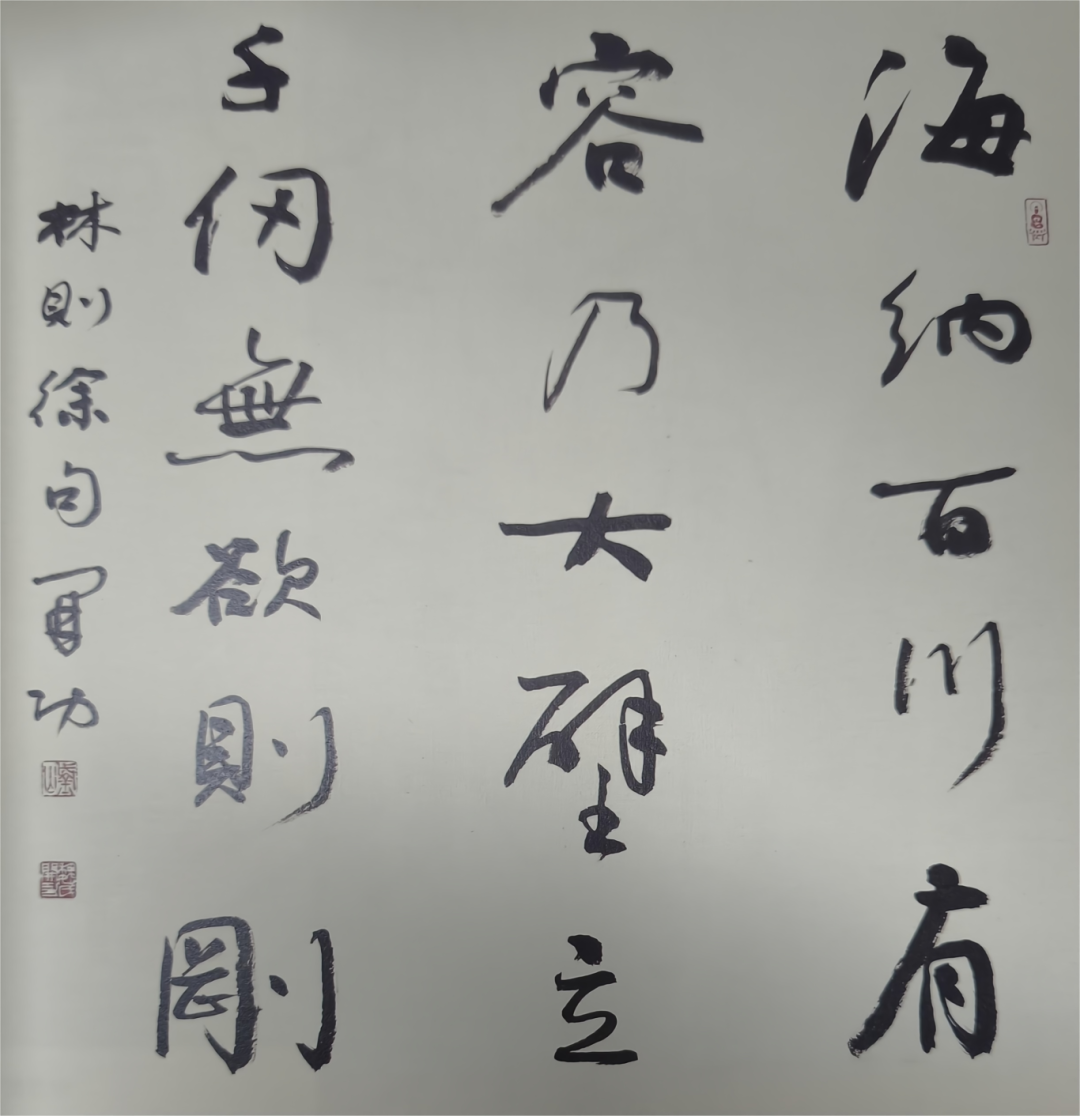 海納百川有
容乃大壁立
千仞無欲則剛
林則徐句軍功